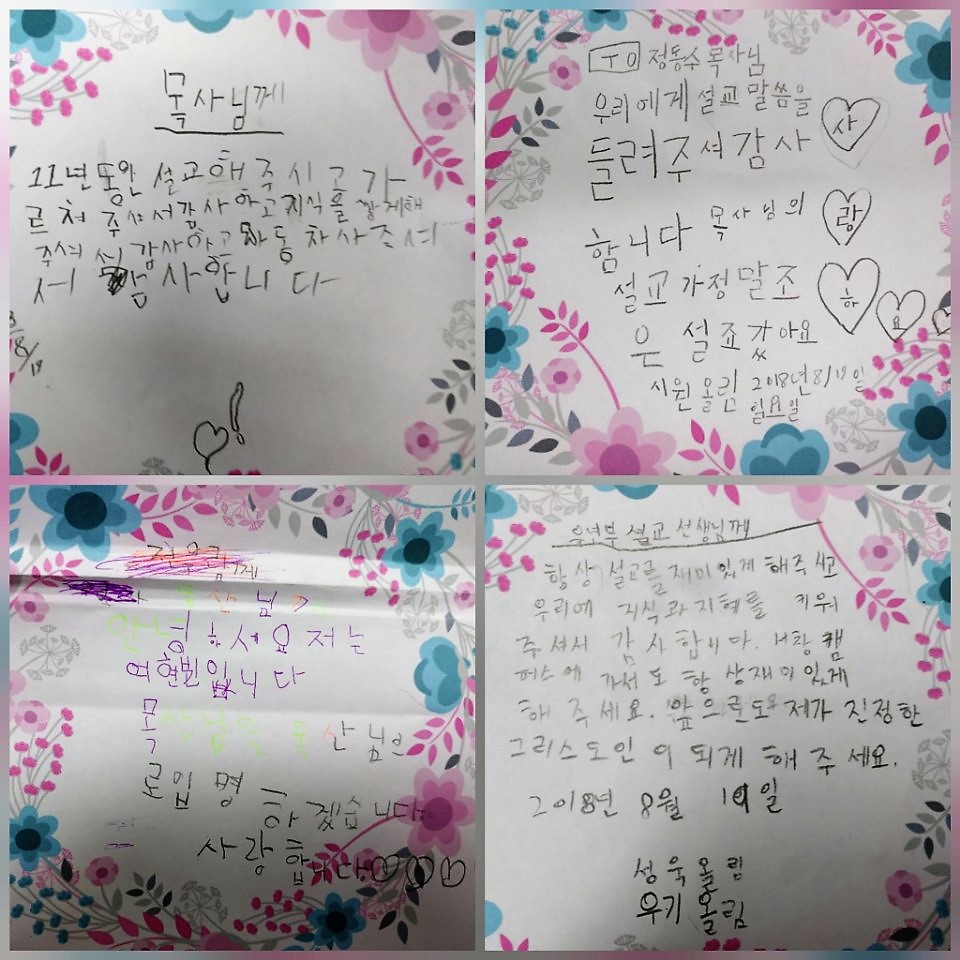 목사님께
11년동안 설교해주시고 가
르쳐 주셔서감사하고 지식을 쌓게해
주셔서 감사하고 자동차사주셔
서 감사합니다
8/19
TO 정동수목사님
우리에게 설교 말씀을
들려주셔감사
함니다 목사님의
설교가정말조
은 설죠갔아요
시원올림 2018년8/19일
일요일
사
랑
하
요
께
산님
안녕하서요 저는
여현빈입니다
목
산님
로입명
하겠습니다
사랑합니다
유년부 설교 선생님께
항상 설교를 재미있게 해주시고
우리에 지식과 지혜를 키워
주셔서 감사합니다. 서창 캠
퍼스에 가서도 항상재미있게
해 주세요. 앞으로도 제가 진정한
그리스도인 이 되게 해 주세요.
2018년 8월 19일
성욱올림
우기올림